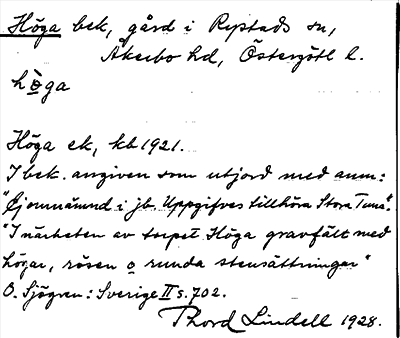 Höga bek, gård i Rystads sn,
Åkerbo hd, Östergötl l.
hö̀ga
Höga ek, kb 1921.
I bek. angiven som utjord med anm:
"Ej omnämnd i jb. Uppgifves tillhöra Stora Tuna".
"I närheten av torpet Höga gravfält med
högar, rösen o runda stensättningar"
O. Sjögren: Sverige II s. 702.
Thord Lindell 1928.